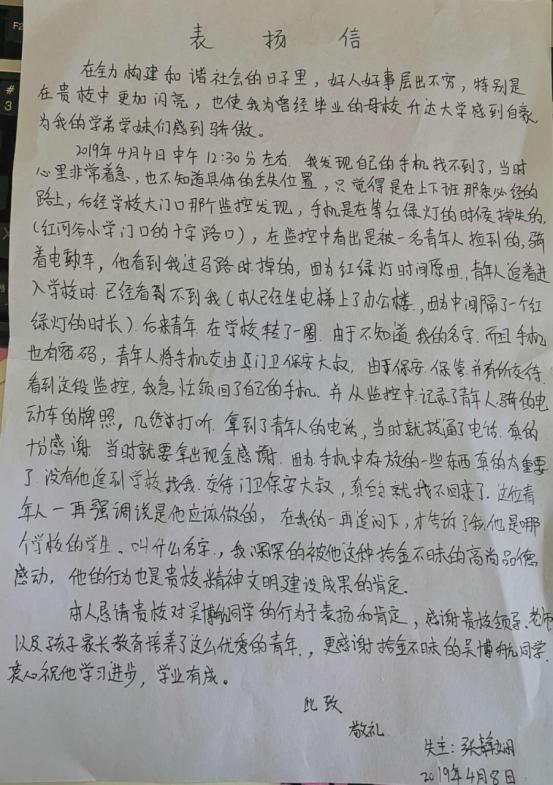 表 扬 信
在全力构建和谐社会的日子里，好人好事层出不穷，特别是
在贵校中更加闪亮，也使我为曾经毕业的母校升达大学感到自豪
为我的学弟学妹们感到骄傲。
2019年4月4日中午12:30分左右，我发现自己的手机找不到了，当时
心里非常着急，也不知道具体的丢失位置，只觉得是在上下班那条必经的
路上，后经学校大门口那个监控发现，手机是在等红绿灯的时候掉失的，
(红河谷小学门口的十字路口)，在监控中看出是被一名青年人捡到的，骑
着电动车，他看到我过马路时掉的，因为红绿灯时间原因，青年人追着进
入学校时已经看不到我(本人已经坐电梯上了办公楼，因为中间隔了一个红
绿灯的时长)。后来青年在学校转了一圈，由于不知道我的名字，而且手机
也有密码，青年人将手机交由门卫保安大叔，由于保安保管并有所交待，
看到这段监控，我急忙领回了自己的手机，并从监控中记录了青年人骑的电
动车的牌照，几经打听，拿到了青年人的电话，当时就拨通了电话，真的
十分感谢，当时就要拿出现金感谢，因为手机中存放的一些东西真的太重要
了，没有他追到学校找我，交待门卫保安大叔，真的就找不回来了，这位青
年人一再强调说是他应该做的，在我的一再追问下，才告诉了我他是哪
个学校的学生、叫什么名字，我深深的被他这种拾金不昧的高尚品德
感动，他的行为也是贵校精神文明建设成果的肯定。
本人恳请贵校对吴博航同学的行为予表扬和肯定，感谢贵校领导、老师
以及孩子家长教育培养了这么优秀的青年，更感谢拾金不昧的吴博航同学，
衷心祝他学习进步，学业有成。
此致
敬礼
失主：张
2019年4月8日